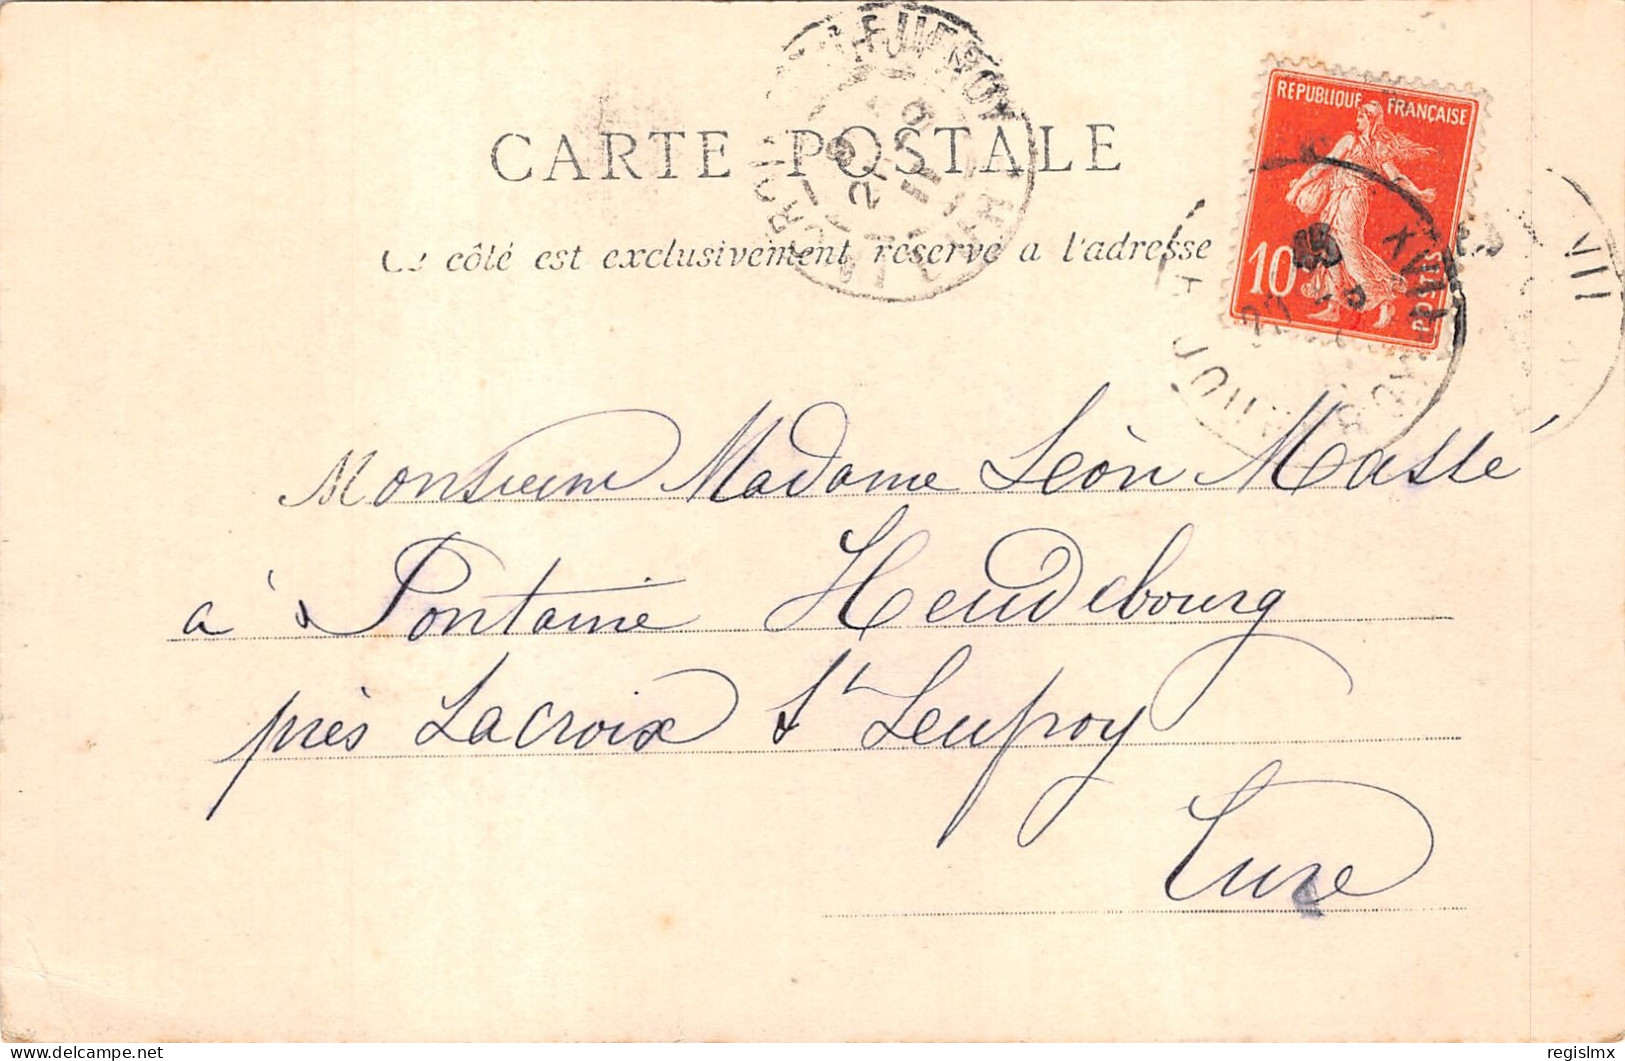 CARTE POSTALE
Ce côté est exclusivement réservé a l'adresse
REPUBLIQUE FRANÇAISE
10
POSTES
Monsieur Madame Léon Massé
à Fontaine Heudebourg
près Lacroix St Leufroy
Eure
delcampe.net
regislmx